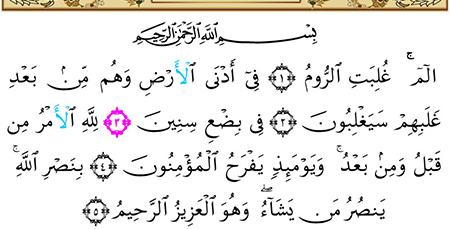 بِسْمِ اللَّهِ الرَّحْمَٰنِ الرَّحِيمِ
الٓمٓ ۚ غُلِبَتِ الرُّومُ ﴿١﴾ فِىٓ أَدْنَى الْأَرْضِ وَهُم مِّنۢ بَعْدِ
غَلَبِهِمْ سَيَغْلِبُونَ ﴿٢﴾ فِى بِضْعِ سِنِينَ ﴿٣﴾ لِلَّهِ الْأَمْرُ مِن
قَبْلُ وَمِنۢ بَعْدُ ۚ وَيَوْمَئِذٍ يَفْرَحُ الْمُؤْمِنُونَ ﴿٤﴾ بِنَصْرِ اللَّهِ ۚ
يَنصُرُ مَن يَشَآءُ ۖ وَهُوَ الْعَزِيزُ الرَّحِيمُ ﴿٥﴾